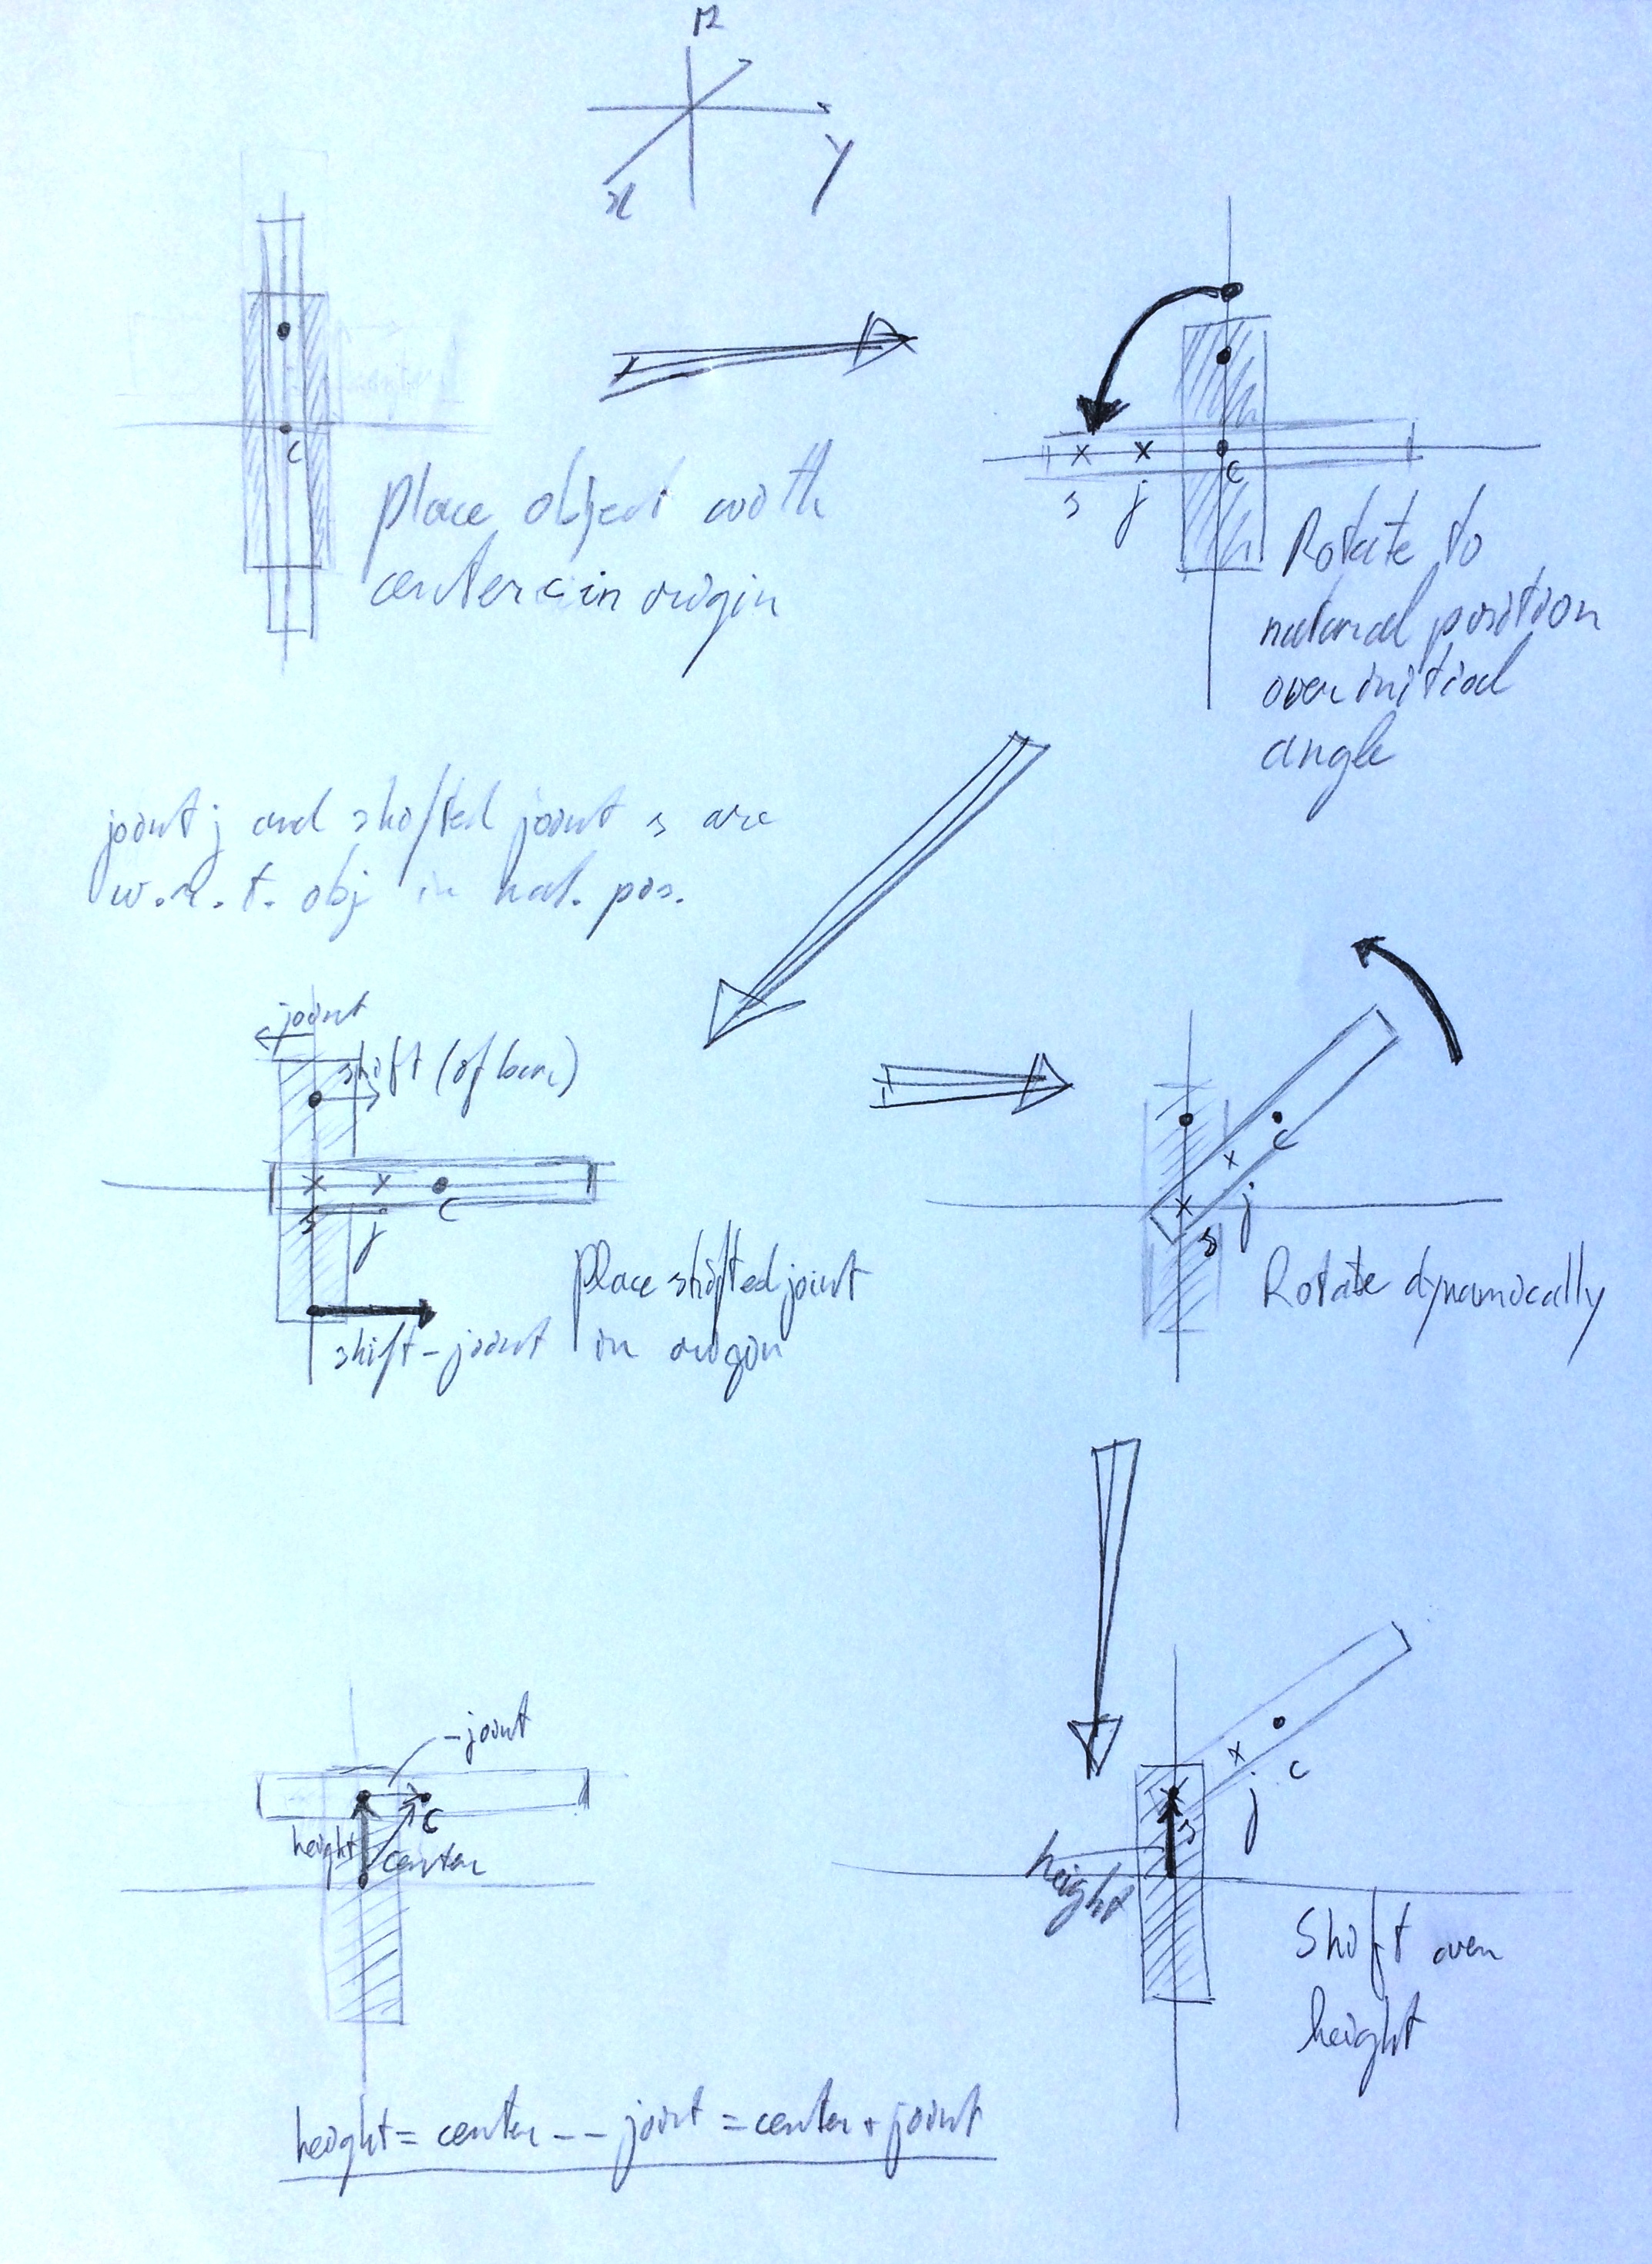 z
y
x
c
Place object with
center c in origin
s j c
Rotate to
natural position
over initial
angle
joint j and shifted joint s are
w.r.t. obj in nat. pos.
joint
shift (of bar)
s j c
shift-joint
Place shifted joint
in origin
c
j
s
Rotate dynamically
-joint
c
height
center
s j c
height
Shift over
height
height = center - - joint = center + joint